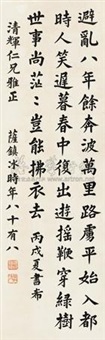 避亂八年餘奔波萬里路虜平始入都
時人笑遲暮春中復出遊搖鞭穿綠樹
世事尚茫茫豈能拂衣去丙戌夏書希
清輝仁兄雅正
薩鎮冰時年八十有八